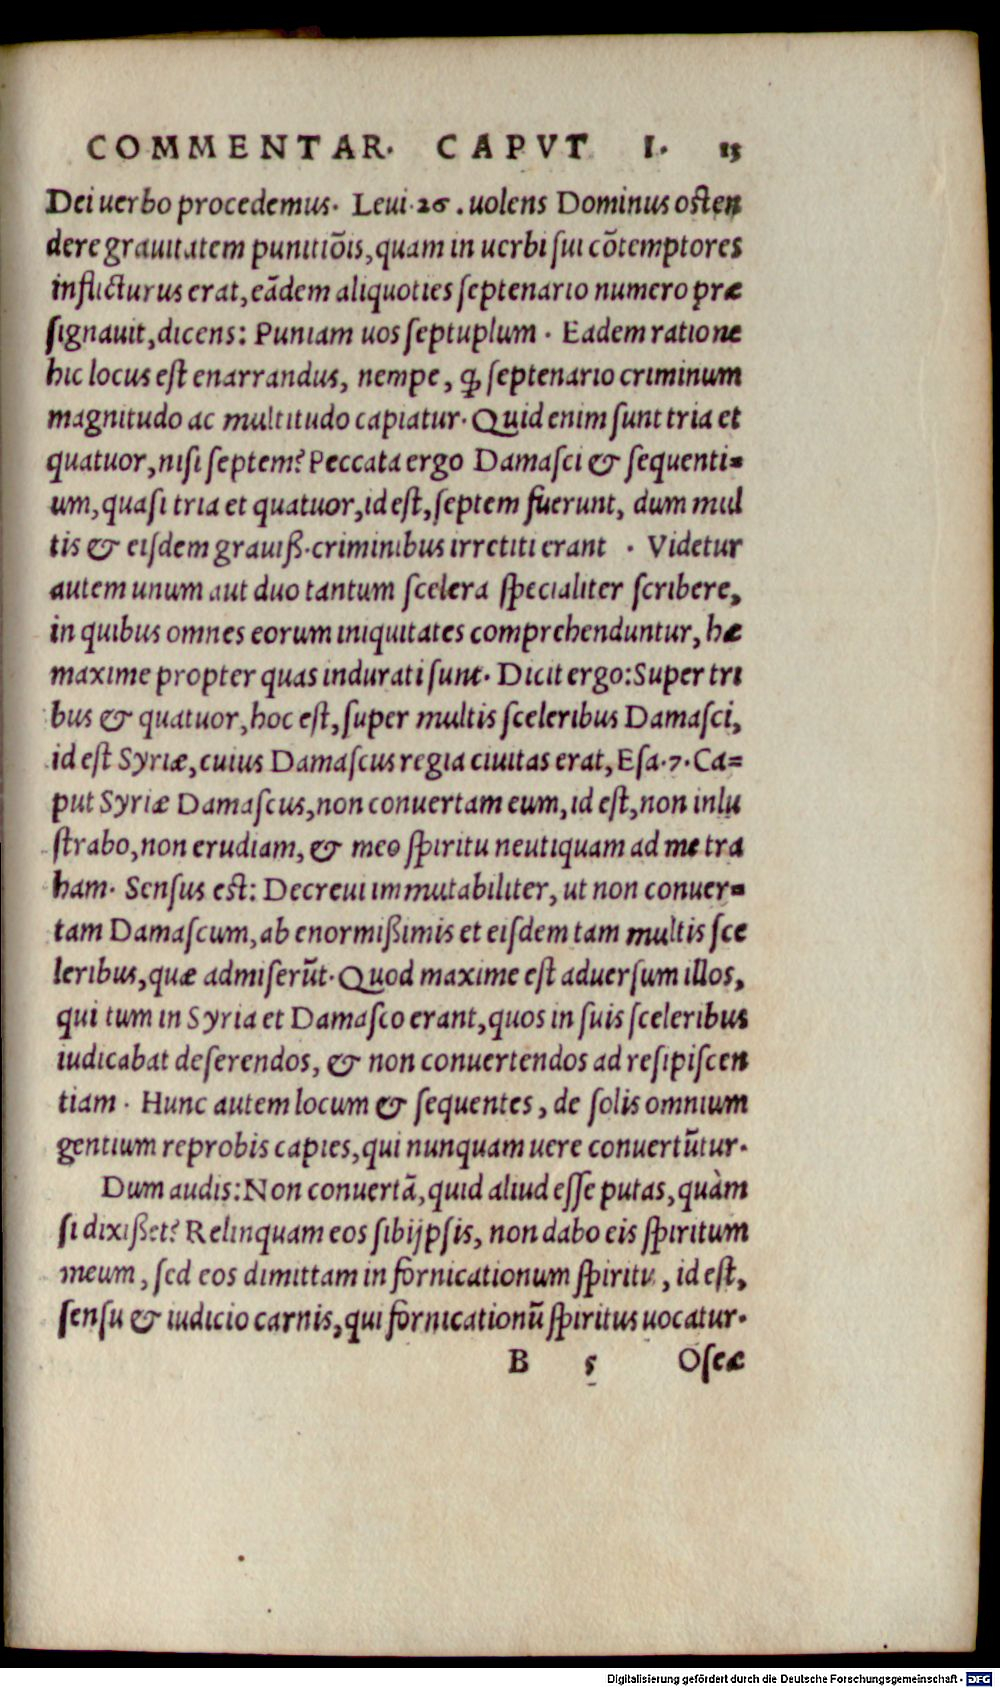 COMMENTAR. CAPVT I. 13
Dei uerbo procedemus. Leui.26. uolens Dominus osten
dere grauitatem punitiõis, quam in uerbi sui cõtemptores
inflicturus erat, eãdem aliquoties septenario numero præ
signauit, dicens: Puniam uos septuplum. Eadem ratione
hic locus est enarrandus, nempe, ꝙ septenario criminum
magnitudo ac multitudo capiatur. Quid enim sunt tria et
quatuor, nisi septem? Peccata ergo Damasci & sequenti=
um, quasi tria et quatuor, id est, septem fuerunt, dum mul
tis & eisdem grauiß. criminibus irretiti erant. Videtur
autem unum aut duo tantum scelera specialiter scribere,
in quibus omnes eorum iniquitates comprehenduntur, hæ
maxime propter quas indurati sunt. Dicit ergo: Super tri
bus & quatuor, hoc est, super multis sceleribus Damasci,
id est Syriæ, cuius Damascus regia ciuitas erat, Esa.7. Ca=
put Syriæ Damascus, non conuertam eum, id est, non inlu
strabo, non erudiam, & meo spiritu neutiquam ad me tra
ham. Sensus est: Decreui immutabiliter, ut non conuer=
tam Damascum, ab enormißimis et eisdem tam multis sce
leribus, quæ admiserũt. Quod maxime est aduersum illos,
qui tum in Syria et Damasco erant, quos in suis sceleribus
iudicabat deserendos, & non conuertendos ad resipiscen
tiam. Hunc autem locum & sequentes, de solis omnium
gentium reprobis capies, qui nunquam uere conuertũtur.
Dum audis: Non conuertã, quid aliud esse putas, quàm
si dixißet? Relinquam eos sibijpsis, non dabo eis spiritum
meum, sed eos dimittam in fornicationum spiritu, id est,
sensu & iudicio carnis, qui fornicationũ spiritus uocatur.
B 5 Oseæ
Digitalisierung gefördert durch die Deutsche Forschungsgemeinschaft - DFG